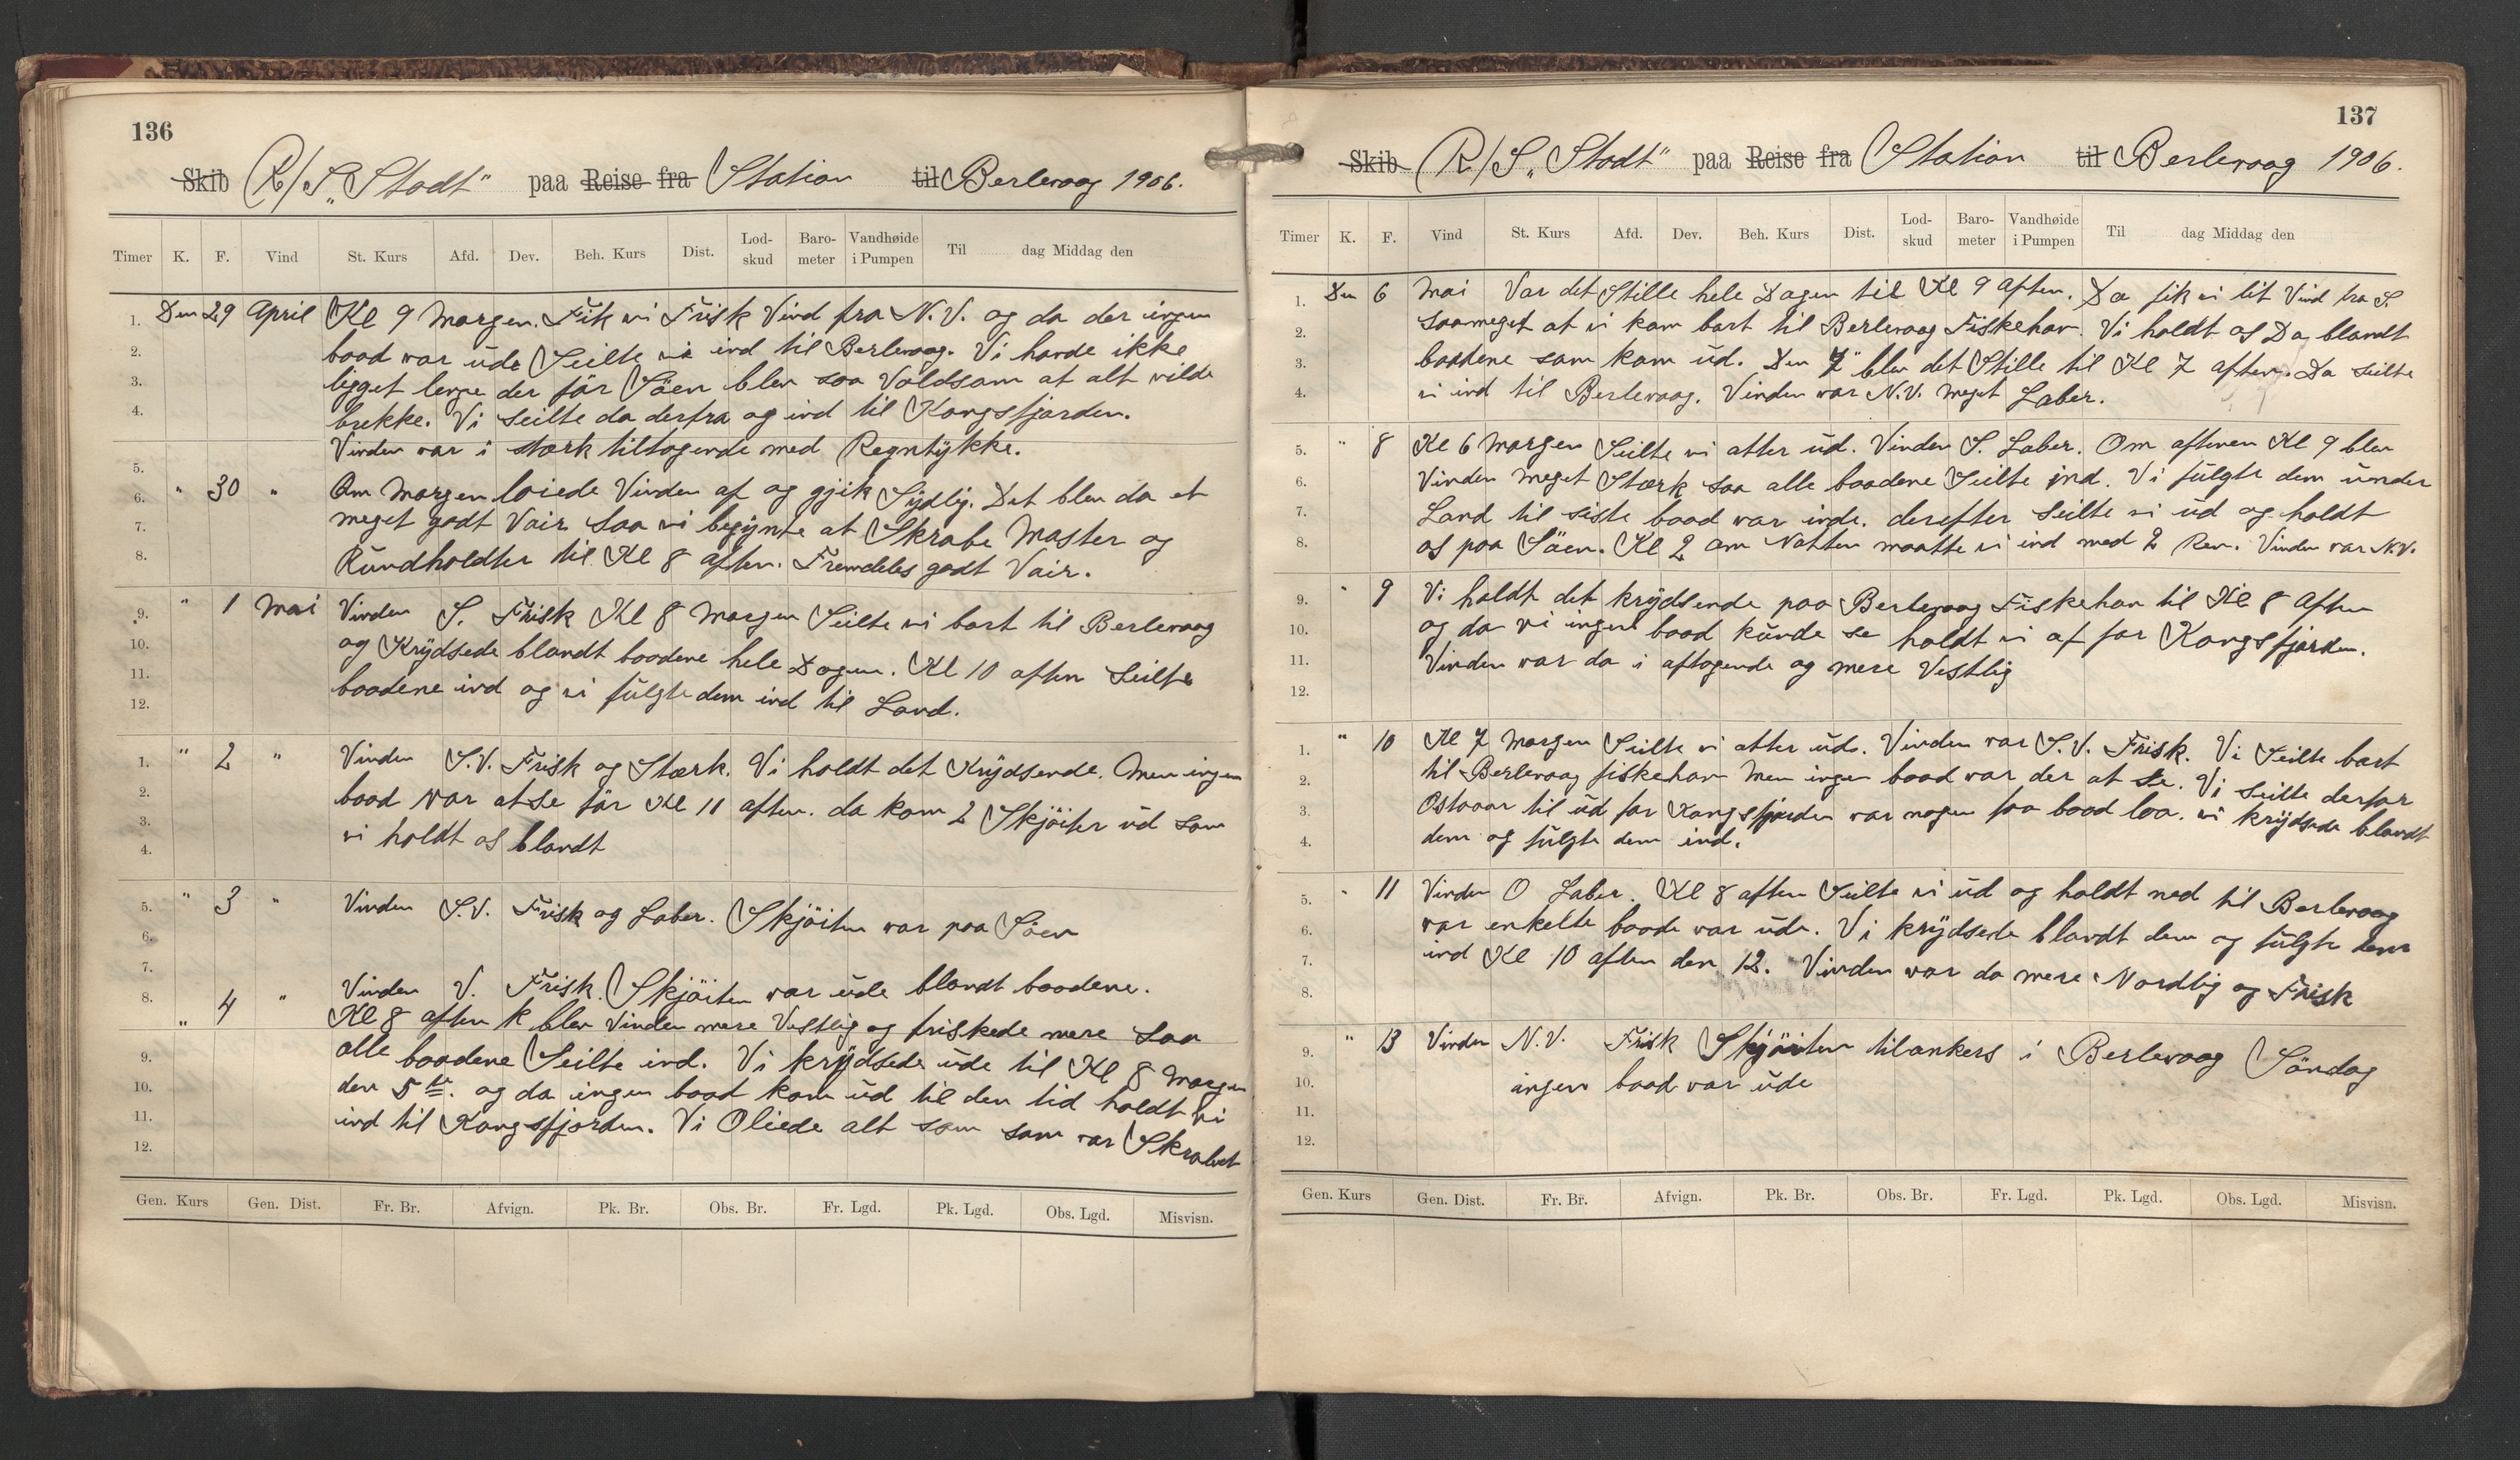 136
Skib R/S „Stadt" paa Reise fra Station til Berlevaag 1906.
Timer K. F. Vind St. Kurs Afd. Dev. Beh. Kurs Dist. Lod-skud Baro-meter Vandhøide i Pumpen Til dag Middag den
1. Den 29 April Kl 9 Morgen. Fik vi Frisk Vind fra N.V. og da der ingen
2. baad var ude Seilte vi ind til Berlevaag. Vi havde ikke
3. ligget lenge der før Søen blev saa Voldsom at alt vilde
4. brekke. Vi Seilte da derfra og ind til Kongsfjorden.
Vinden var i stærk tiltagende med Regntykke.
5.
6. " 30 " Om Morgen løiede Vinden af og gjik Sydlig. Det blev da et
7. meget godt Vair saa vi begynte at Skrabe Master og
8. Rundholdter til Kl 8 aften. Fremdeles godt Vair.
9. " 1 Mai Vinden S. Frisk Kl 8 Morgen Seilte vi bort til Berlevaag
10. og Krydsede blandt baadene hele Dagen. Kl 10 aften Seilte
11. baadene ind og vi fulgte dem ind til Land.
12.
1. " 2 " Vinden S.V. Frisk og Stærk. Vi holdt det Krydsende. Men ingen
2. baad var at se før Kl 11 aften. da kom 2 Skjøiter ud som
3. vi holdt os blandt
4.
5. " 3 " Vinden S.V. Frisk og Laber. Skjøiten var paa Søen
6.
7.
8. „ 4 " Vinden V. Frisk. Skjøiten var ude blandt baadene.
Kl 8 aften k blev Vinden mere Vestlig og friskede mere saa
9. alle baadene Seilte ind. Vi krydsede ude til Kl 8 Morgen
10. den 5te. og da ingen baad kom ud til den tid holdt vi
11. ind til Kongsfjorden. Vi Oliede alt som som var Skrabet
12.
Gen. Kurs Gen. Dist. Fr. Br. Afvign. Pk. Br. Obs. Br. Fr. Lgd. Pk. Lgd. Obs. Lgd. Misvisn.
137
Skib R/S „Stadt" paa Reise fra Station til Berlevaag 1906.
Timer K. F. Vind St. Kurs Afd. Dev. Beh. Kurs Dist. Lod-skud Baro-meter Vandhøide i Pumpen Til dag Middag den
1. Den 6 Mai Var det Stille hele Dagen til Kl 9 aften. Da fik vi lit Vind fra S.
2. saameget at vi kom bort til Berlevaag Fiskehav. Vi holdt os Da blandt
3. baadene som kom ud. Den 7" blev det Stille til Kl 7 aften. Da seilte
4. vi ind til Berlevaag. Vinden var N.V. meget Laber.
5. " 8 Kl 6 Morgen Seilte vi atter ud. Vinden S. Laber. Om aftenen Kl 9 blev
6. Vinden meget Stærk saa alle baadene Seilte ind. Vi fulgte dem under
7. Land til siste baad var inde. derefter Seilte vi ud og holdt
8. os paa Søen. Kl 2 om Natten maatte vi ind med 2 Rev. Vinden var N.V.
9. " 9 Vi holdt det krydsende paa Berlevaag Fiskehav til Kl 8 Aften
10. og da vi ingen baad kunde se holdt vi af for Kongsfjorden.
11. Vinden var da i aftagende og mere Vestlig
12.
1. " 10 Kl 7 Morgen Seilte vi atter ud. Vinden var S.V. Frisk. Vi Seilte bort
2. til Berlevaag fiskehav Men ingen baad var der at se. Vi Seilte derfor
3. Ostover til ud for Kongsfjorden var nogen faa baad laa. vi krydsede blandt
4. dem og fulgte dem ind.
5. " 11 Vinden O Laber. Kl 8 aften Seilte vi ud og holdt ned til Berlevaag
6. var enkelte baade var ude. Vi krydsede blandt dem og fulgte dem
7. ind Kl 10 aften den 12. Vinden var da mere Nordlig og Frisk
8.
9. " 13 Vinden N.V. Frisk Skjøiten tilankers i Berlevaag Søndag
10. ingen baad var ude
11.
12.
Gen. Kurs Gen. Dist. Fr. Br. Afvign. Pk. Br. Obs. Br. Fr. Lgd. Pk. Lgd. Obs. Lgd. Misvisn.